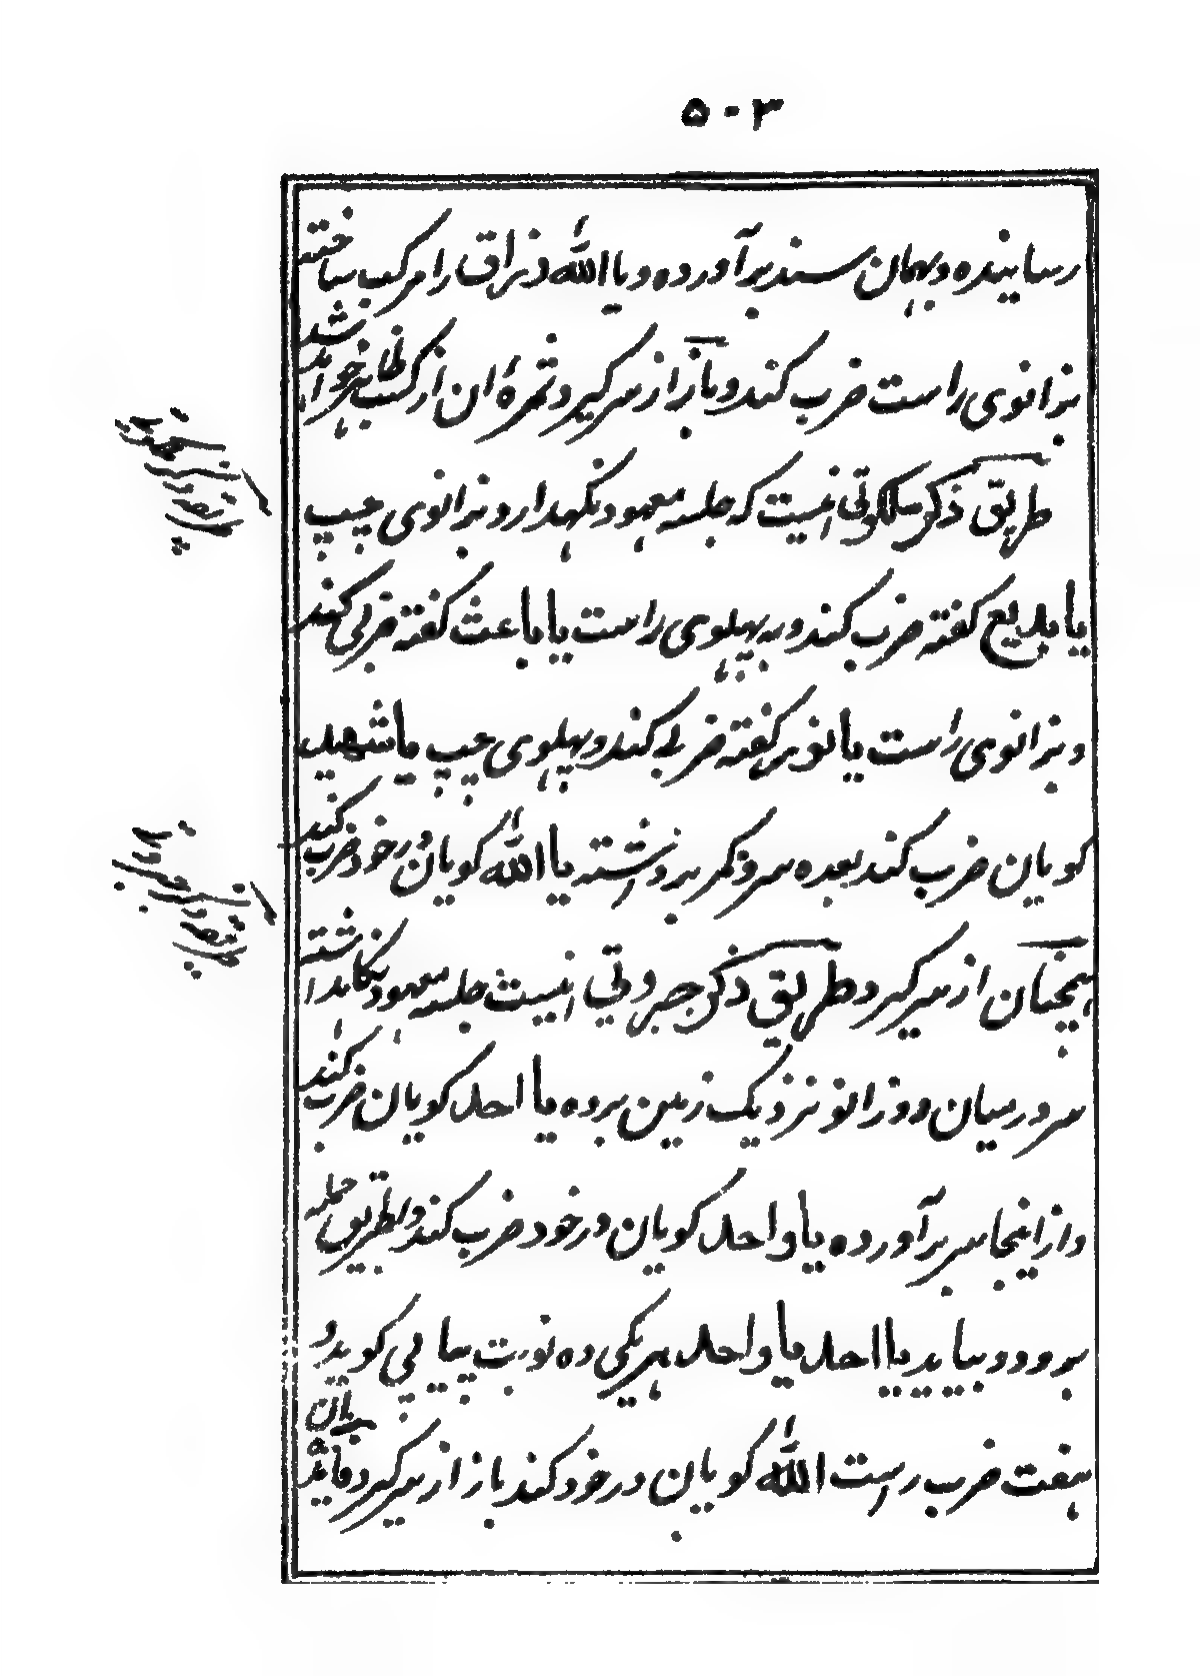 ۵۰۳
رسانیده و بهمان سند برآورده و یا الله ذنراق را مرکب ساخته
بزانوی راست ضرب کند و باز از سر گیرد و ثمرهٔ ان از کسب ظاهر خواهد شد
طریق ذکر ملکوتی اینست که جلسه معهود نگهدارد و بزانوی چپ
یا بدیع گفته ضرب کند و به پهلوی راست یا باعث گفته ضربی کند
و بزانوی راست یا نور گفته ضربی کند و بپهلوی چپ یا شهید
گویان ضرب کند بعده سر و کمر برداشته یا الله گویان در خود ضرب کند
همچنان از سر گیرد و طریق ذکر جبروتی اینست جلسه معهود نگاهداشته
سر درمیان دو زانو نزدیک زمین برده یا احد گویان ضرب کند
و از اینجا سر برآورده یا واحد گویان در خود ضرب کند و بطریق حمله
برود و بیاید یا احد یا واحد هر یکی ده نوبت پیاپی گوید و
هفت ضرب راست الله گویان در خود کند باز از سر گیرد و فائده بان